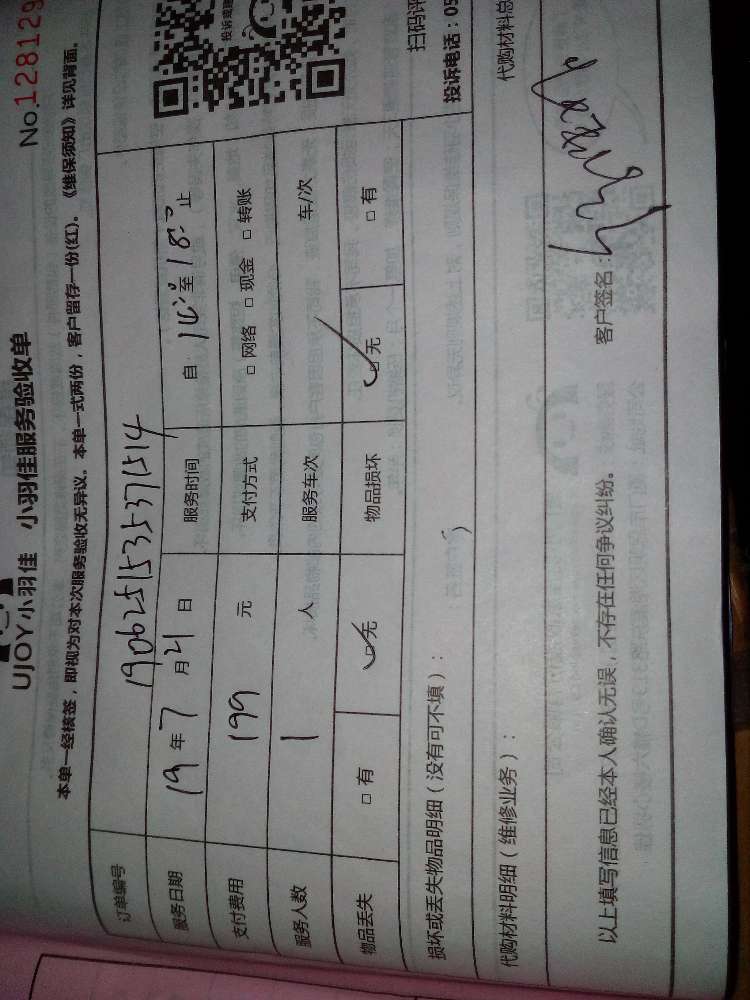 No.128129
UJOY小羽佳 小羽佳服务验收单
本单一经核签，即视为对本次服务验收无异议。本单一式两份，客户留存一份(红)。《维保须知》详见背面。
订单编号 1906251535371514
服务日期 19 年 7 月 21 日 服务时间 自 14:00 至 18:00 止
支付费用 199 元 支付方式 □ 网络 □ 现金 □ 转账
服务人数 1 人 服务车次 车/次
物品丢失 □ 有 □ 无 物品损坏 □ 无 □ 有
损坏或丢失物品明细（没有可不填）：
扫码评
投诉电话：05
代购材料明细（维修业务）： 代购材料总
以上填写信息已经本人确认无误，不存在任何争议纠纷。 客户签名：